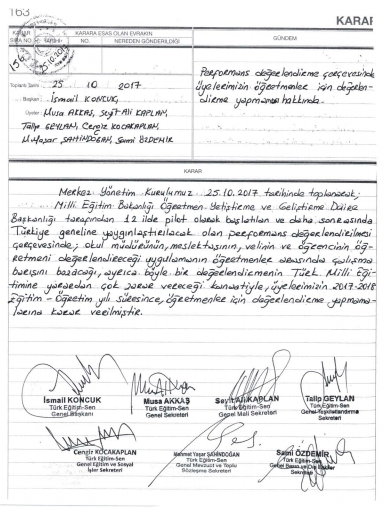 163
KARAR
KARAR
SIRA NO.
KARARA ESAS OLAN EVRAKIN
TARİHİ NO. NEREDEN GÖNDERİLDİĞİ
GÜNDEM
156
25.10.2017
Toplantı Tarihi : 25 10 2017
Başkan : İsmail KONCUK,
Üyeler : Musa AKKAŞ, Seyit Ali KAPLAN,
Talip GEYLAN, Cengiz KOCAKAPLAN,
M.Yaşar ŞAHİNDOĞAN, Sami ÖZDEMİR
Performans değerlendirme çerçevesinde
üyelerimizin öğretmenler için değerlen-
dirme yapmaması hakkında.
KARAR
Merkez Yönetim Kurulumuz 25.10.2017 tarihinde toplanarak;
Milli Eğitim Bakanlığı Öğretmen Yetiştirme ve Geliştirme Daire
Başkanlığı tarafından 12 ilde pilot olarak başlatılan ve daha sonrasında
Türkiye geneline yaygınlaştırılacak olan performans değerlendirilmesi
çerçevesinde; okul müdürünün, meslektaşının, velinin ve öğrencinin öğ-
retmeni değerlendireceği uygulamanın öğretmenler arasında çalışma
barışını bozacağı, ayrıca böyle bir değerlendirmenin Türk Milli Eği-
timine yarardan çok zarar vereceği kanaatiyle, üyelerimizin 2017-2018
Eğitim - Öğretim yılı süresince, öğretmenler için değerlendirme yapmama-
larına karar verilmiştir.
İsmail KONCUK
Türk Eğitim-Sen
Genel Başkanı
Musa AKKAŞ
Türk Eğitim-Sen
Genel Sekreteri
Seyit Ali KAPLAN
Türk Eğitim-Sen
Genel Mali Sekreteri
Talip GEYLAN
Türk Eğitim-Sen
Genel Teşkilatlandırma
Sekreteri
Cengiz KOCAKAPLAN
Türk Eğitim-Sen
Genel Eğitim ve Sosyal
İşler Sekreteri
Mehmet Yaşar ŞAHİNDOĞAN
Türk Eğitim-Sen
Genel Mevzuat ve Toplu
Sözleşme Sekreteri
Sami ÖZDEMİR
Türk Eğitim-Sen
Genel Basın ve Dış İlişkiler
Sekreteri